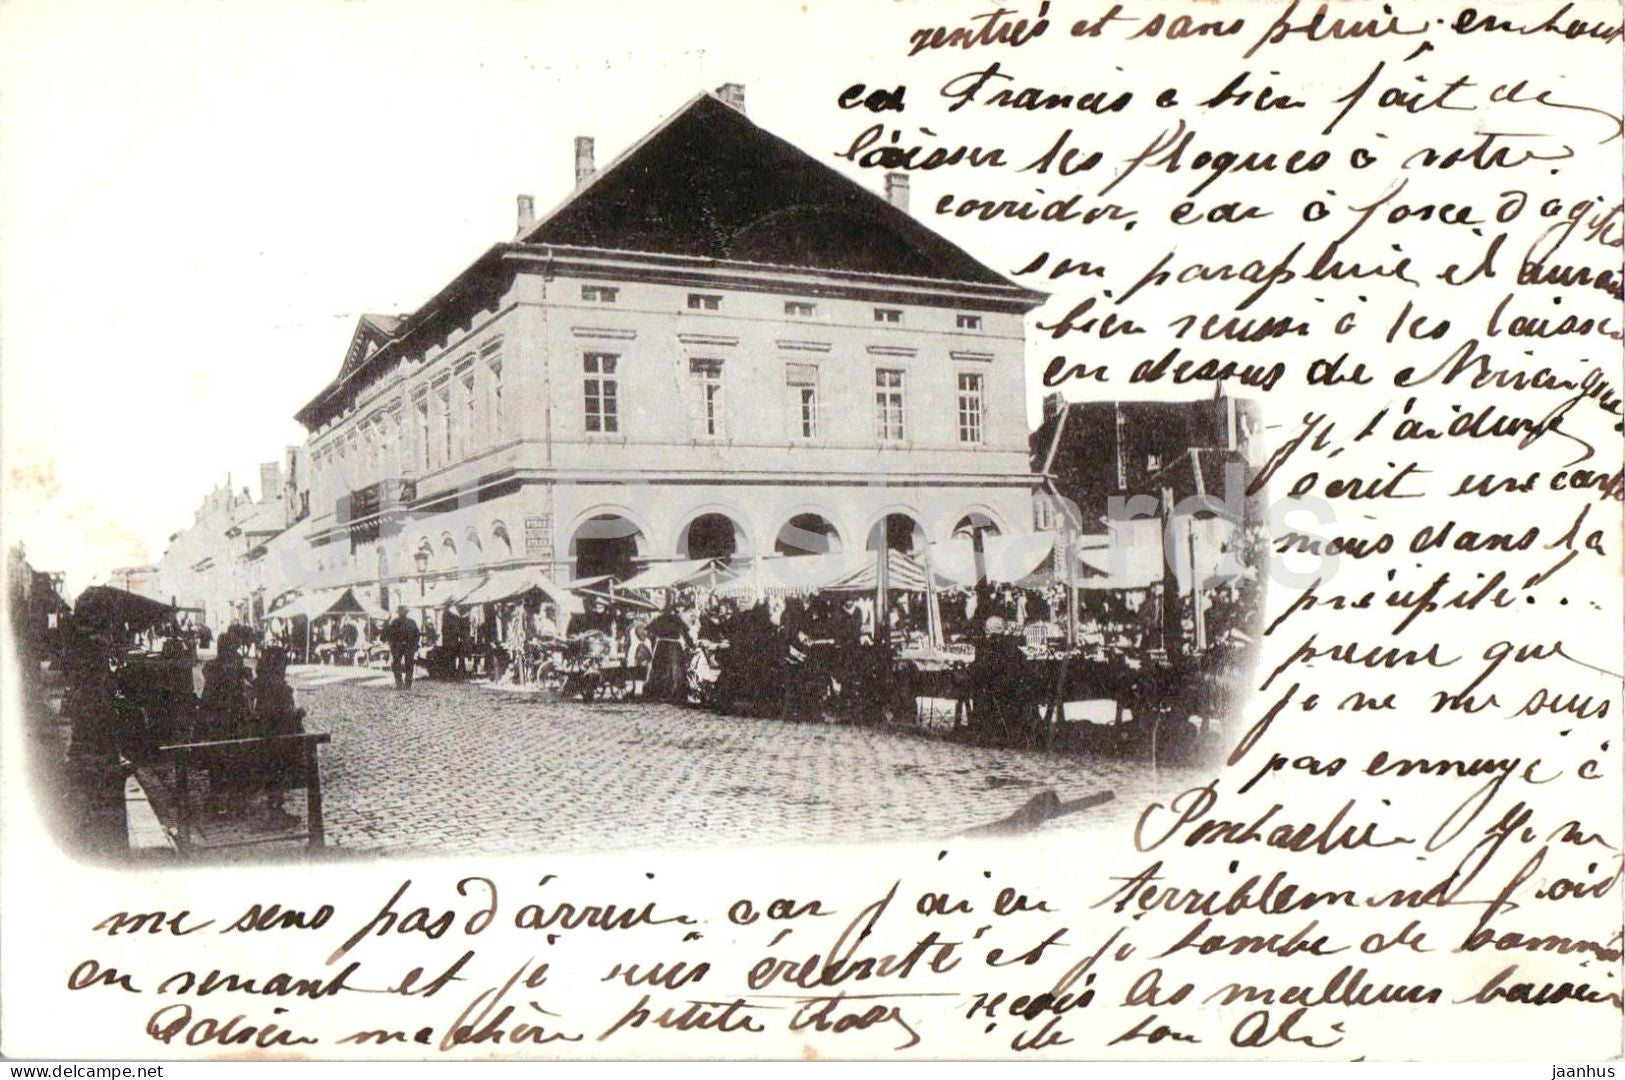 rentrés et sans pluie, en tout
cas Francis a bien fait de
laisser les floques à votre
corridor, car à force d'agiter
son parapluie il aurait
bien reussi à les laisser
en dessus de
Je t'aidume
écrit une carte
mais dans la
précipité...
preuve que
je ne me suis
pas ennuyé à
Pontarlier Je ne
me sens pas d'arriver car j'ai eu terriblement froid
en venant et je suis éreinté et je tombe de sommeil
Adieu ma chère petite Rose reçois les meilleurs baisers
de ton Ali
JH Postcards
jaanhus
delcampe.net